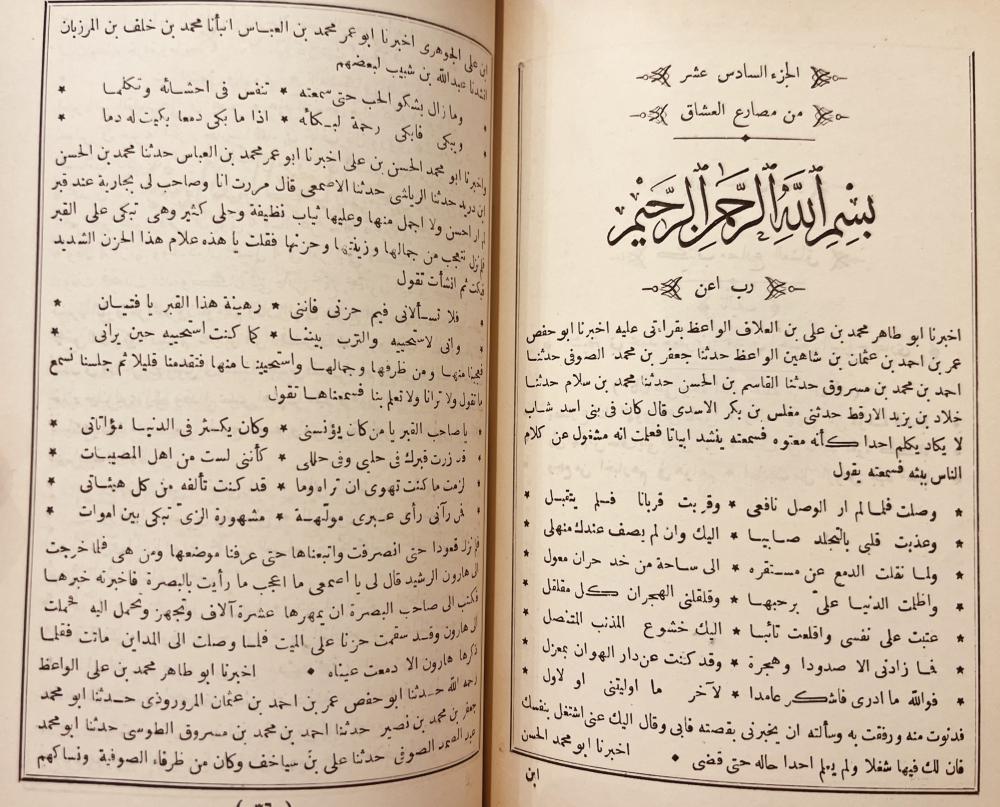 الجزء السادس عشر
من مصارع العشاق
بِسْمِ ٱللَّهِ ٱلرَّحْمَٰنِ ٱلرَّحِيمِ
رب اعن
اخبرنا ابو طاهر محمد بن على بن العلاف الواعظ بقراءتى عليه اخبرنا ابو حفص
عمر بن احمد بن عثمان بن شاهين الواعظ حدثنا جعفر بن محمد الصوفى حدثنا
احمد بن محمد بن مسروق حدثنا القاسم بن الحسن حدثنا محمد بن سلام حدثنا
خلاد بن يزيد الارقط حدثنى مغلس بن بكر الاسدى قال كان فى بنى اسد شاب
لا يكاد يكلم احدا كأنه معتوه فسمعته ينشد ابياتا فعلمت انه مشغول عن كلام
الناس ببثه فسمعته يقول
* وصلت فلما لم ار الوصل نافعى * وقربت قربانا فلم يتقبل *
* وعذبت قلبى بالتجلد صابيا * اليك وان لم يصف عندك منهلى *
* ولما نقلت الدمع عن مستقره * الى ساحة من خد حران معول *
* واظلمت الدنيا علىّ برحبها * وقلقلنى الهجران كل مقلقل *
* عتبت على نفسى واقلعت تائبا * اليك خشوع المذنب المتنصل *
* فما زادنى الا صدودا وهجرة * وقد كنت عن دار الهوان بمعزل *
* فوالله ما ادرى فاشكر عامدا * لآخر ما اوليتنى او لاول *
فدنوت منه ورفقت به وسألته ان يخبرنى بقصته فابى وقال اليك عنى اشتغل بنفسك
فان لك فيها شغلا ولم يعلم احدا حاله حتى قضى • اخبرنا ابو محمد الحسن
ابن
ابن على الجوهرى اخبرنا ابو عمر محمد بن العباس انبأنا محمد بن خلف بن المرزبان
انشدنا عبدالله بن شبيب لبعضهم
* وما زال يشكو الحب حتى سمعته * تنفس فى احشائه وتكلما *
* ويبكى فابكى رحمة لبكائه * اذا ما بكى دمعا بكيت له دما *
واخبرنا ابو محمد الحسن بن على اخبرنا ابو عمر محمد بن العباس حدثنا محمد بن الحسن
ابن دريد حدثنا الرياشى حدثنا الاصمعى قال مررت انا وصاحب لى بجارية عند قبر
لم ار احسن ولا اجمل منها وعليها ثياب نظيفة وحلى كثير وهى تبكى على القبر
فلم نزل نتعجب من جمالها وزينتها وحزنها فقلت يا هذه علام هذا الحزن الشديد
فبكت ثم انشأت تقول
* فلا تسألانى فيم حزنى فاننى * رهينة هذا القبر يا فتيان *
* وانى لاستحييه والترب بيننا * كما كنت استحييه حين يرانى *
فعجبنا منها ومن ظرفها وجمالها واستحيينا منها فتقدمنا قليلا ثم جلسنا نسمع
ما تقول ولا ترانا ولا تعلم بنا فسمعناها تقول
* يا صاحب القبر يا من كان يؤنسنى * وكان يكثر فى الدنيا مؤاتاتى *
* قد زرت قبرك فى حلىى وفى حللى * كأننى لست من اهل المصيبات *
* لزمت ما كنت تهوى ان تراه وما * قد كنت تألفه من كل هيئاتى *
* فمن رآنى رأى عبرى مولّهة * مشهورة الزىّ تبكى بين اموات *
فلم نزل قعودا حتى انصرفت واتبعناها حتى عرفنا موضعها ومن هى فلما خرجت
الى هارون الرشيد قال لى يا اصمعى ما اعجب ما رأيت بالبصرة فاخبرته خبرها
فكتب الى صاحب البصرة ان يمهرها عشرة آلاف وتجهز وتحمل اليه فحملت
الى هارون وقد سقمت حزنا على الميت فلما وصلت الى المداين ماتت فقلما
ذكرها هارون الا دمعت عيناه • اخبرنا ابو طاهر محمد بن على الواعظ
رحمه الله حدثنا ابو حفص عمر بن احمد بن عثمان المروروذى حدثنا ابو محمد
جعفر بن محمد بن نصير حدثنا احمد بن محمد بن مسروق الطوسى حدثنا ابو محمد
عبد الصمد الصوفى حدثنا على بن سياخف وكان من ظرفاء الصوفية ونساكهم